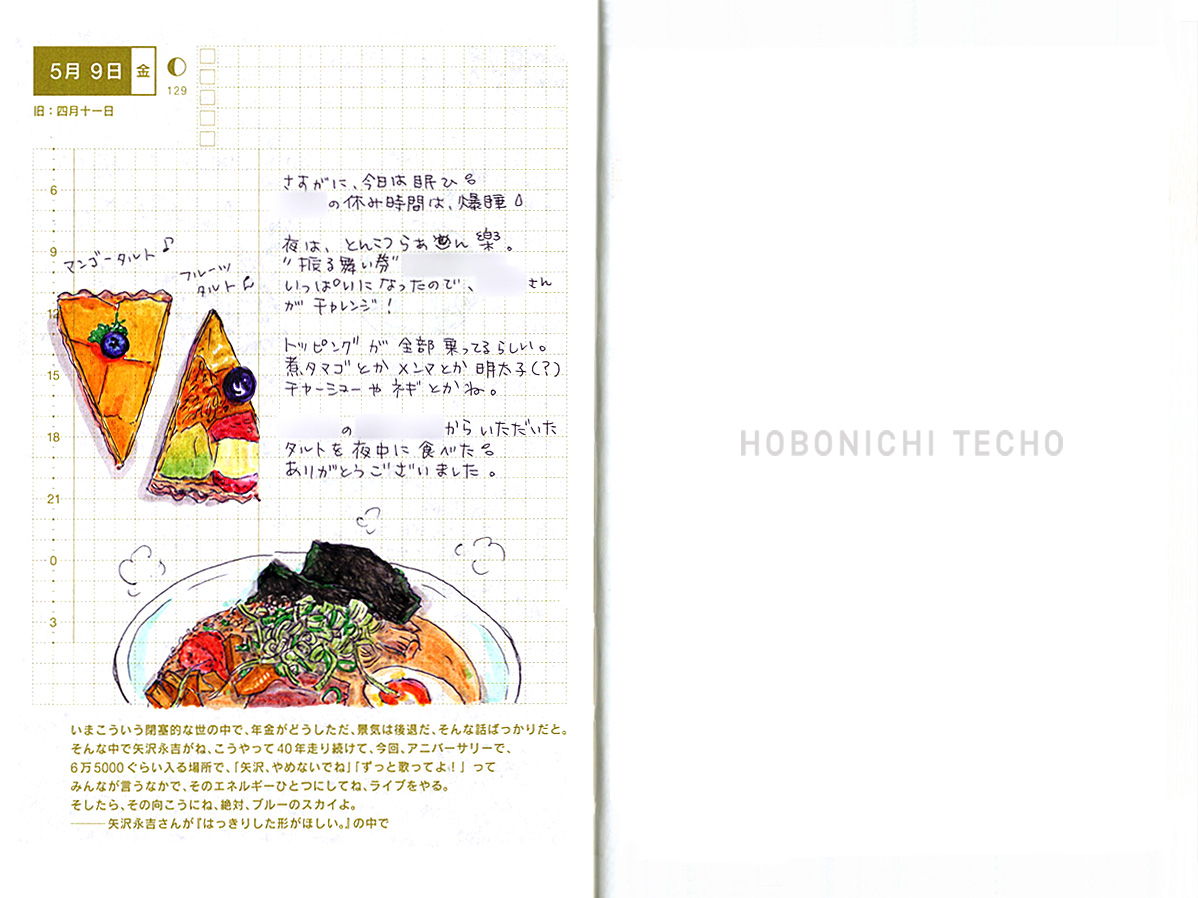 5月 9日 金
129
旧：四月十一日
6
9
12
15
18
21
0
3
マンゴータルト♪
フルーツ
タルト♪
さすがに、今日は眠ひ
の休み時間は、爆睡
夜は、とんこつらぁめん 楽。
"振る舞い券"
いっぱいになったので、 さん
が チャレンジ！
トッピングが 全部 乗ってるらしい。
煮タマゴとか メンマとか 明太子(?)
チャーシューや ネギとかね。
の からいただいた
タルトを 夜中に 食べた
ありがとうございました。
いまこういう閉塞的な世の中で、年金がどうしただ、景気は後退だ、そんな話ばっかりだと。
そんな中で矢沢永吉がね、こうやって40年走り続けて、今回、アニバーサリーで、
6万5000ぐらい入る場所で、「矢沢、やめないでね」「ずっと歌ってよ！」って
みんなが言うなかで、そのエネルギーひとつにしてね、ライブをやる。
そしたら、その向こうにね、絶対、ブルーのスカイよ。
――矢沢永吉さんが『はっきりした形がほしい。』の中で
HOBONICHI TECHO